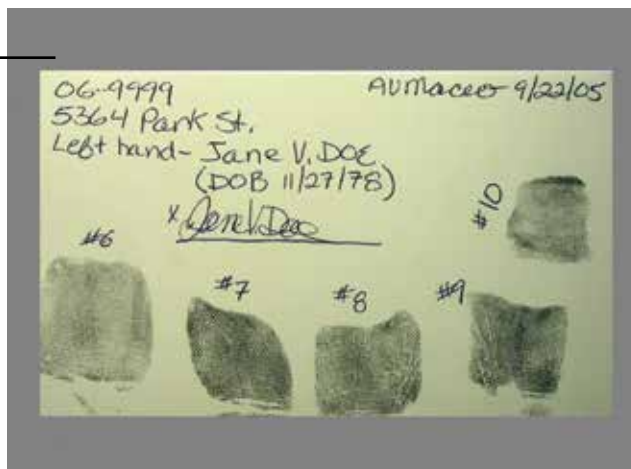 06-9999
AVMaceo 9/22/05
5364 Park St.
Left hand- Jane V. DOE
(DOB 11/27/78)
x Jane V. Doe
#6
#7
#8
#9
#10